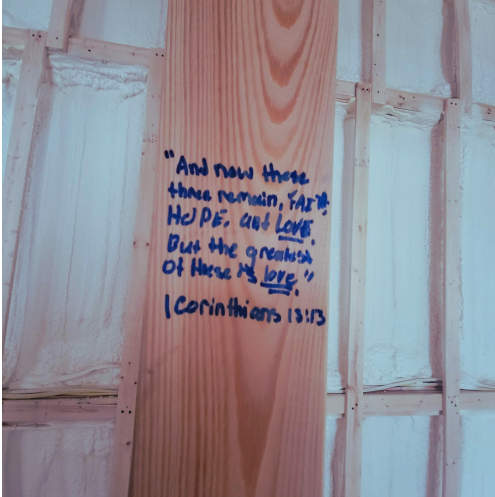 "And now these
three remain, FAITH,
HOPE, and LOVE.
But the greatest
Of these is love."
1 Corinthians 13:13